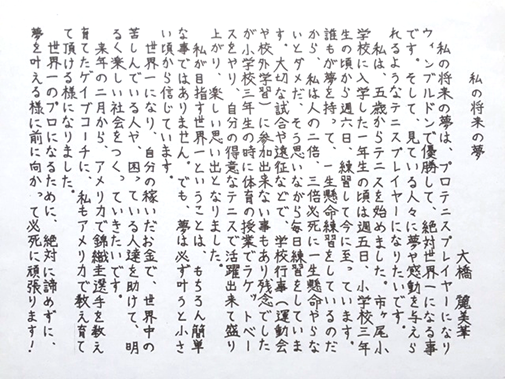 私の将来の夢
大橋 麗美華
私の将来の夢は、プロテニスプレイヤーになり
ウィンブルドンで優勝して、絶対世界一になる事
です。そして、見ている人々に夢や感動を与えら
れるようなテニスプレイヤーになりたいです。
私は、五歳からテニスを始めました。市ヶ尾小
学校に入学した一年生の頃は週五日、小学校三年
生の頃から週六日、練習して今に至っています。
誰もが夢を持って、一生懸命練習をしているのだ
から、私は人の二倍、三倍必死に一生懸命やらな
いとダメだ、そう思いながら毎日練習をしていま
す。大切な試合や遠征などで、学校行事(運動会
や校外学習)に参加出来ない事もあり残念でした
が小学校三年生の時に体育の授業でラケットベー
スをやり、自分の得意なテニスで活躍出来て盛り
上がり、楽しい思い出となりました。
私が目指す世界一ということは、もちろん簡単
な事ではありません。でも、夢は必ず叶うと小さ
い頃から信じています。
世界一になり、自分の稼いだお金で、世界中の
苦しんでいる人や、困っている人達を助けて、明
るく楽しい社会をつくっていきたいです。
来年の二月から、アメリカで錦織圭選手を教え
育てたゲイブコーチに、私もアメリカで教え育て
て頂ける様になりました。
世界一のプロになるために、絶対に諦めずに、
夢を叶える様に前に向かって必死に頑張ります!